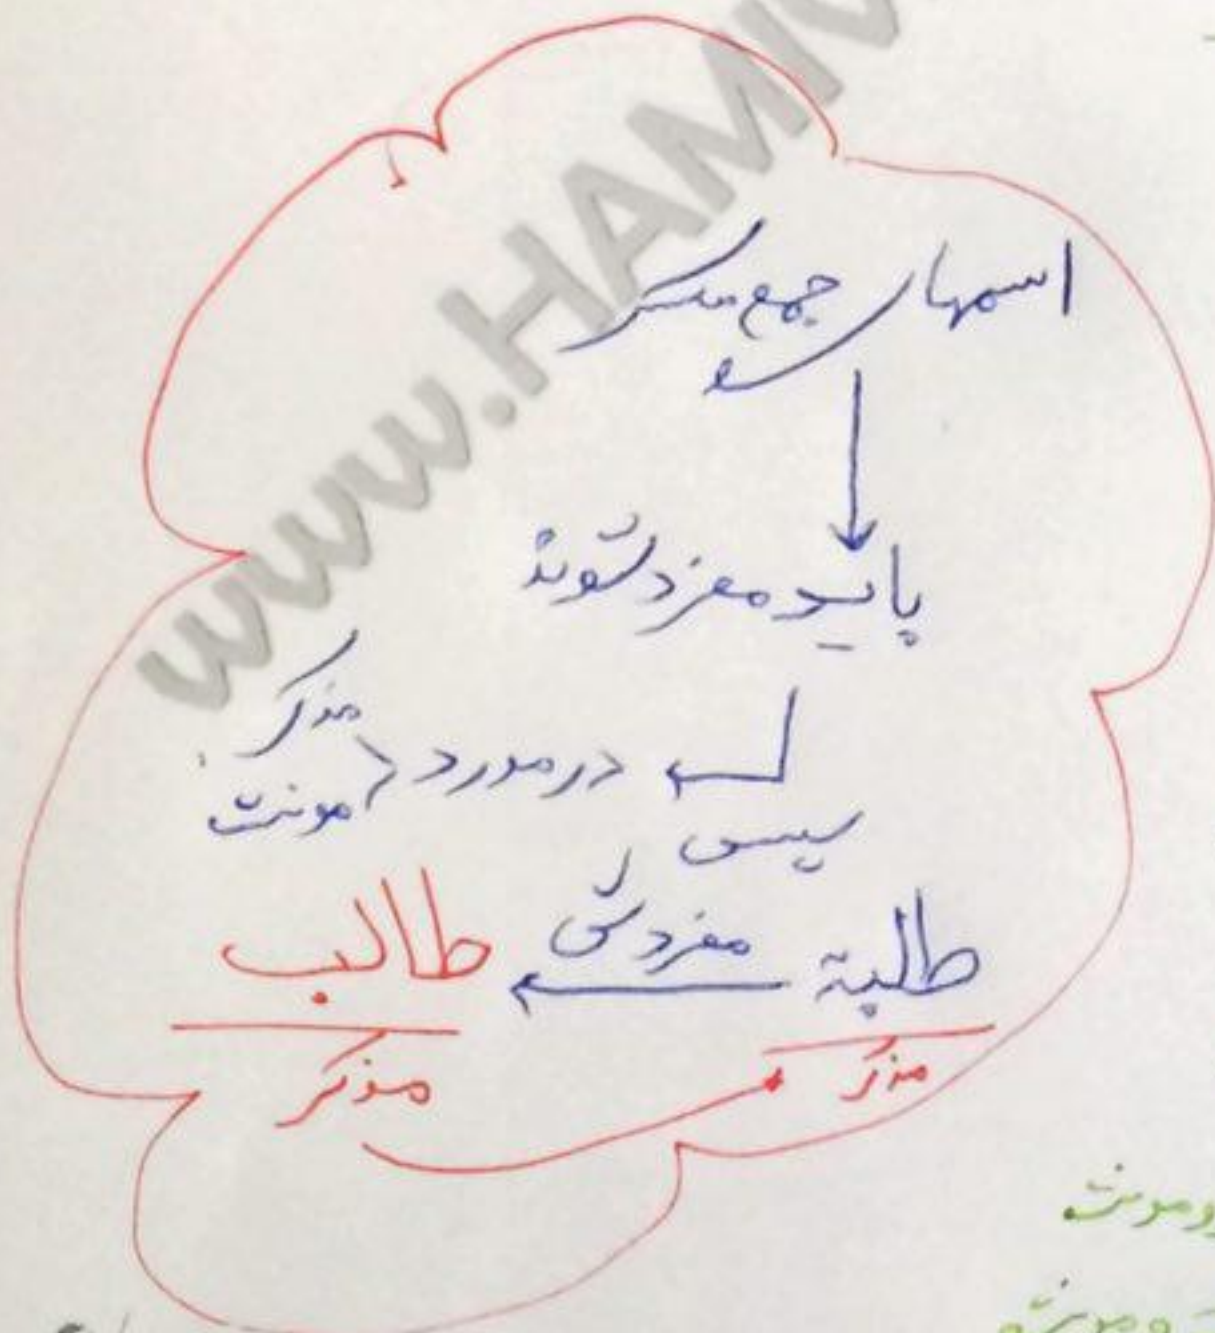 www.HAMV
اسمهای جمع مکسر
باید مفرد شوند
سپس
در مورد
مذکر
مونث
طلبة
مفردش
طالب
مذکر
مذکر
و مونث